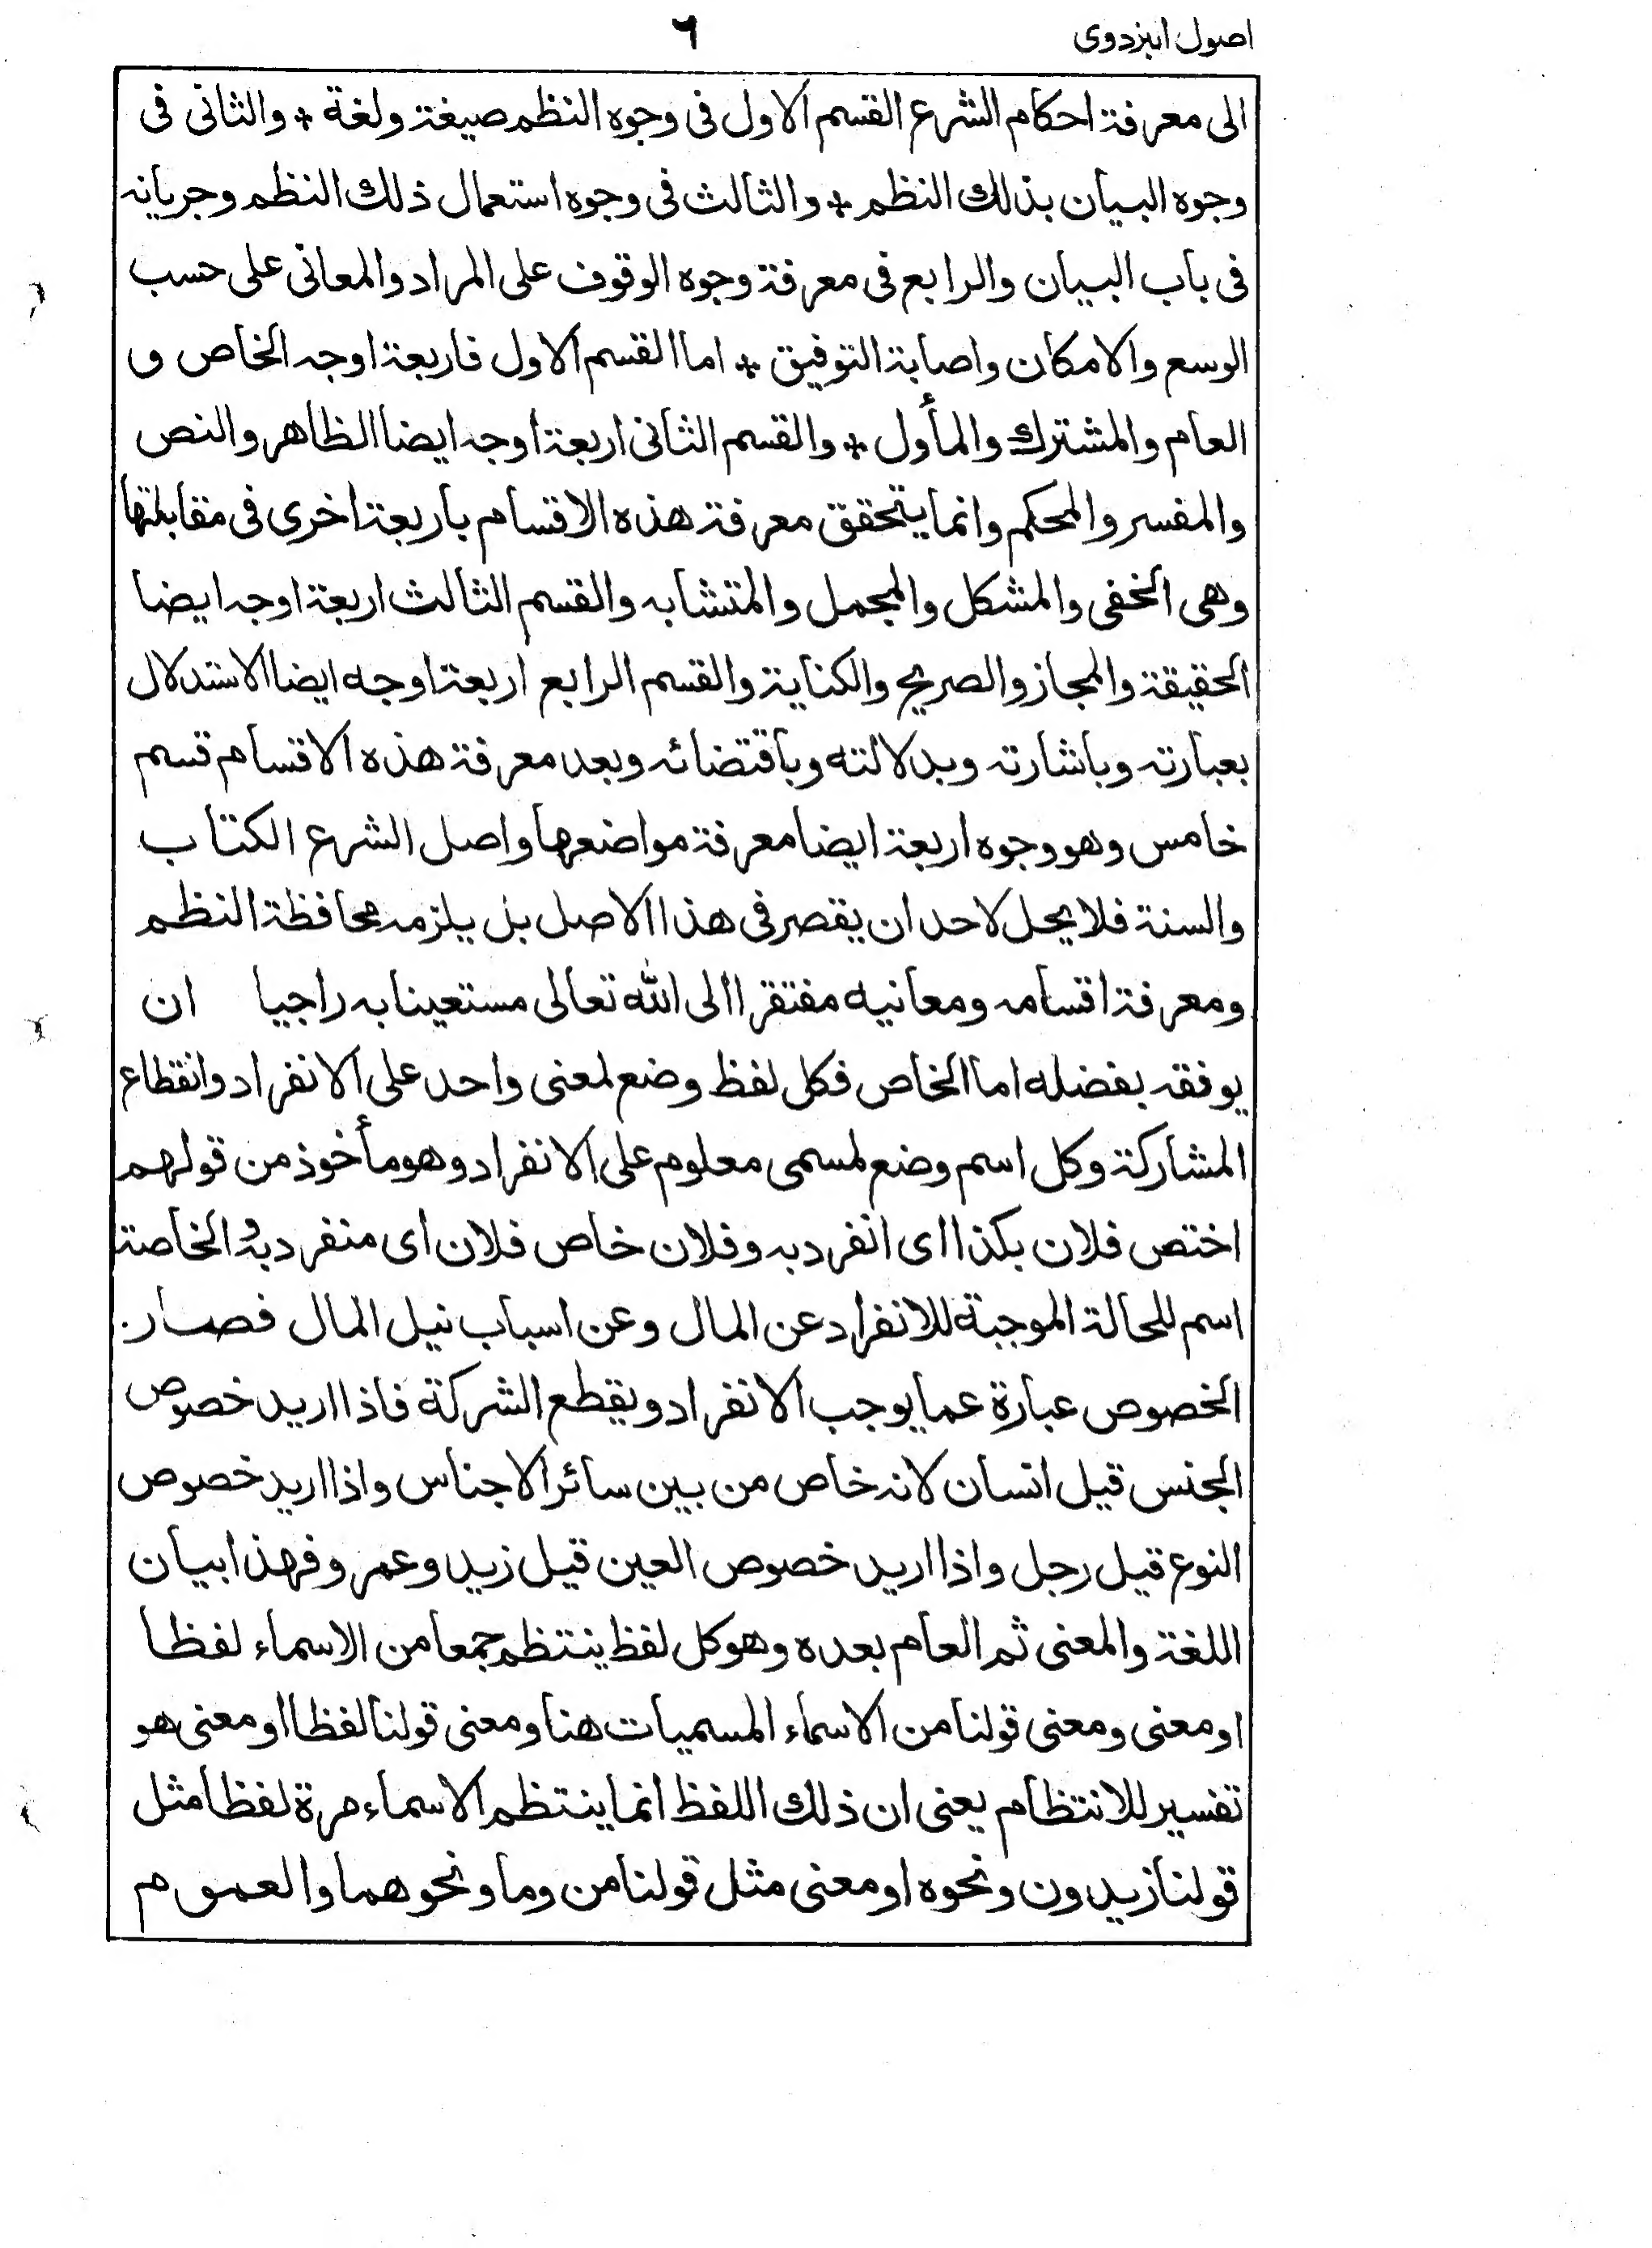 اصول البزدوى
٦
الى معرفة احكام الشرع القسم الاول فى وجوه النظم صيغة ولغة * والثانى فى
وجوه البيان بذلك النظم * والثالث فى وجوه استعمال ذلك النظم وجريانه
فى باب البيان والرابع فى معرفة وجوه الوقوف على المراد والمعانى على حسب
الوسع والامكان واصابة التوفيق * اما القسم الاول فاربعة اوجه الخاص و
العام والمشترك والمأول * والقسم الثانى اربعة اوجه ايضا الظاهر والنص
والمفسر والمحكم وانما يتحقق معرفة هذه الاقسام باربعة اخرى فى مقابلتها
وهى الخفى والمشكل والمجمل والمتشابه والقسم الثالث اربعة اوجه ايضا
الحقيقة والمجاز والصريح والكناية والقسم الرابع اربعة اوجه ايضا الاستدلال
بعبارته وباشارته وبدلالته وباقتضائه وبعد معرفة هذه الاقسام قسم
خامس وهو وجوه اربعة ايضا معرفة مواضعها واصل الشرع الكتاب
والسنة فلا يحل لاحد ان يقصر فى هذا الاصل بل يلزمه محافظة النظم
ومعرفة اقسامه ومعانيه مفتقرا الى الله تعالى مستعينا به راجيا ان
يوفقه بفضله اما الخاص فكل لفظ وضع لمعنى واحد على الانفراد وانقطاع
المشاركة وكل اسم وضع لمسمى معلوم على الانفراد وهو مأخوذ من قولهم
اختص فلان بكذا اى انفرد به وفلان خاص فلان اى منفرد به والخاصة
اسم للحالة الموجبة للانفراد عن المال وعن اسباب نيل المال فصار
الخصوص عبارة عما يوجب الانفراد ويقطع الشركة فاذا اريد خصوص
الجنس قيل انسان لانه خاص من بين سائر الاجناس واذا اريد خصوص
النوع قيل رجل واذا اريد خصوص العين قيل زيد وعمرو فهذا بيان
اللغة والمعنى ثم العام بعده وهو كل لفظ ينتظم جمعا من الاسماء لفظا
او معنى ومعنى قولنا من الاسماء المسميات هنا ومعنى قولنا لفظا او معنى هو
تفسير للانتظام يعنى ان ذلك اللفظ انما ينتظم الاسماء مرة لفظا مثل
قولنا زيدون ونحوه او معنى مثل قولنا من وما ونحوهما والعموم